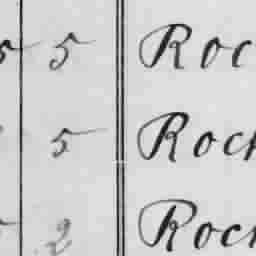 5 5 Roc
5 Rock
2 Rock